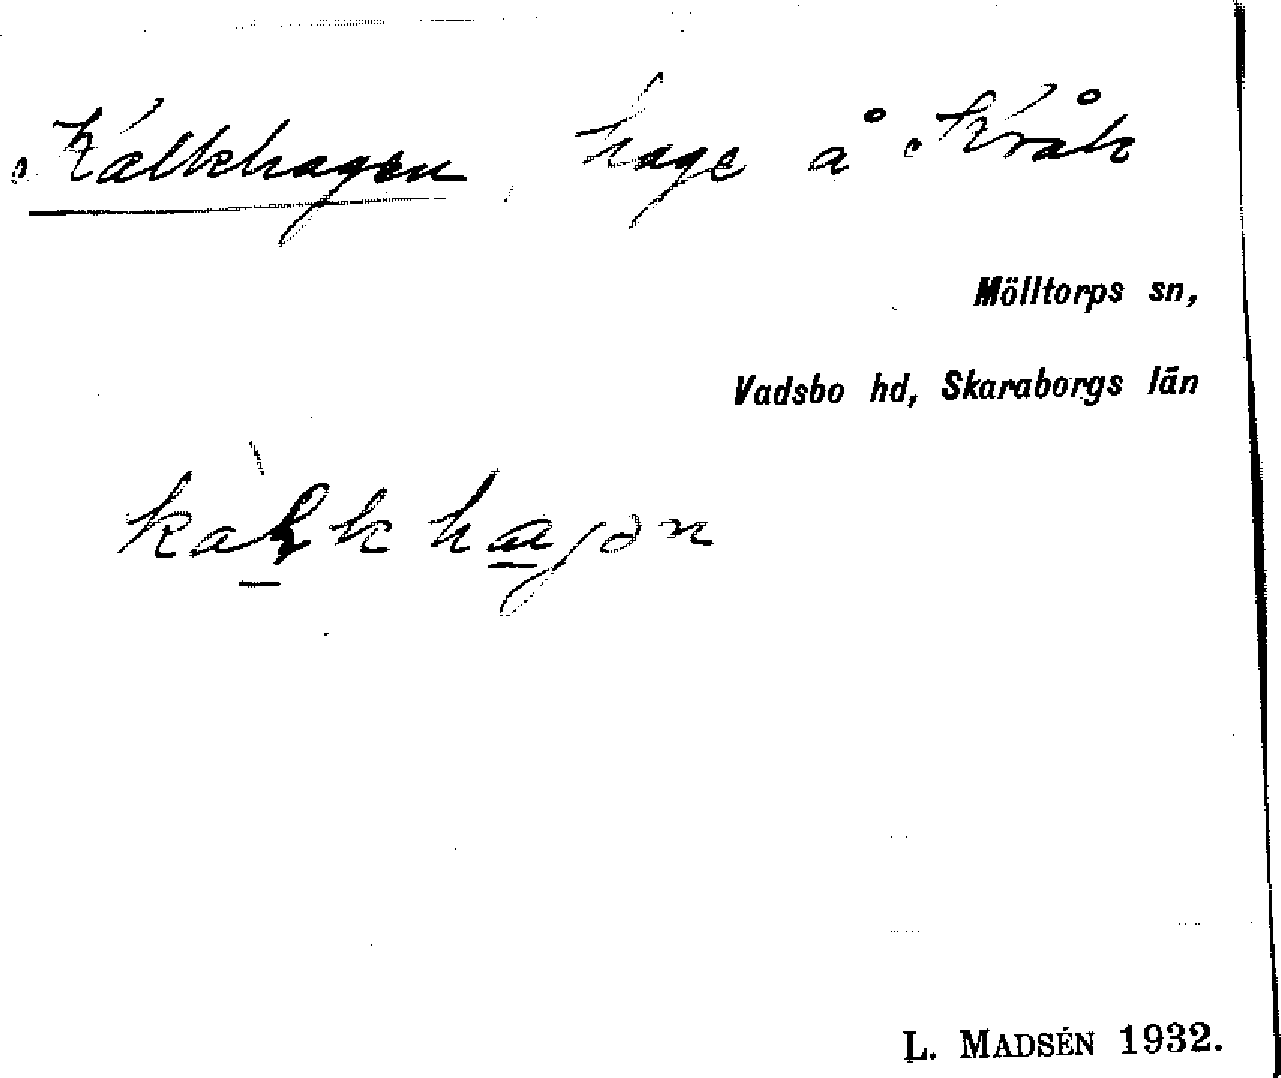 Kalkhagen, hage å Kråk
Mölltorps sn,
Vadsbo hd, Skaraborgs län
kàlkhagən
L. MADSÉN 1932.